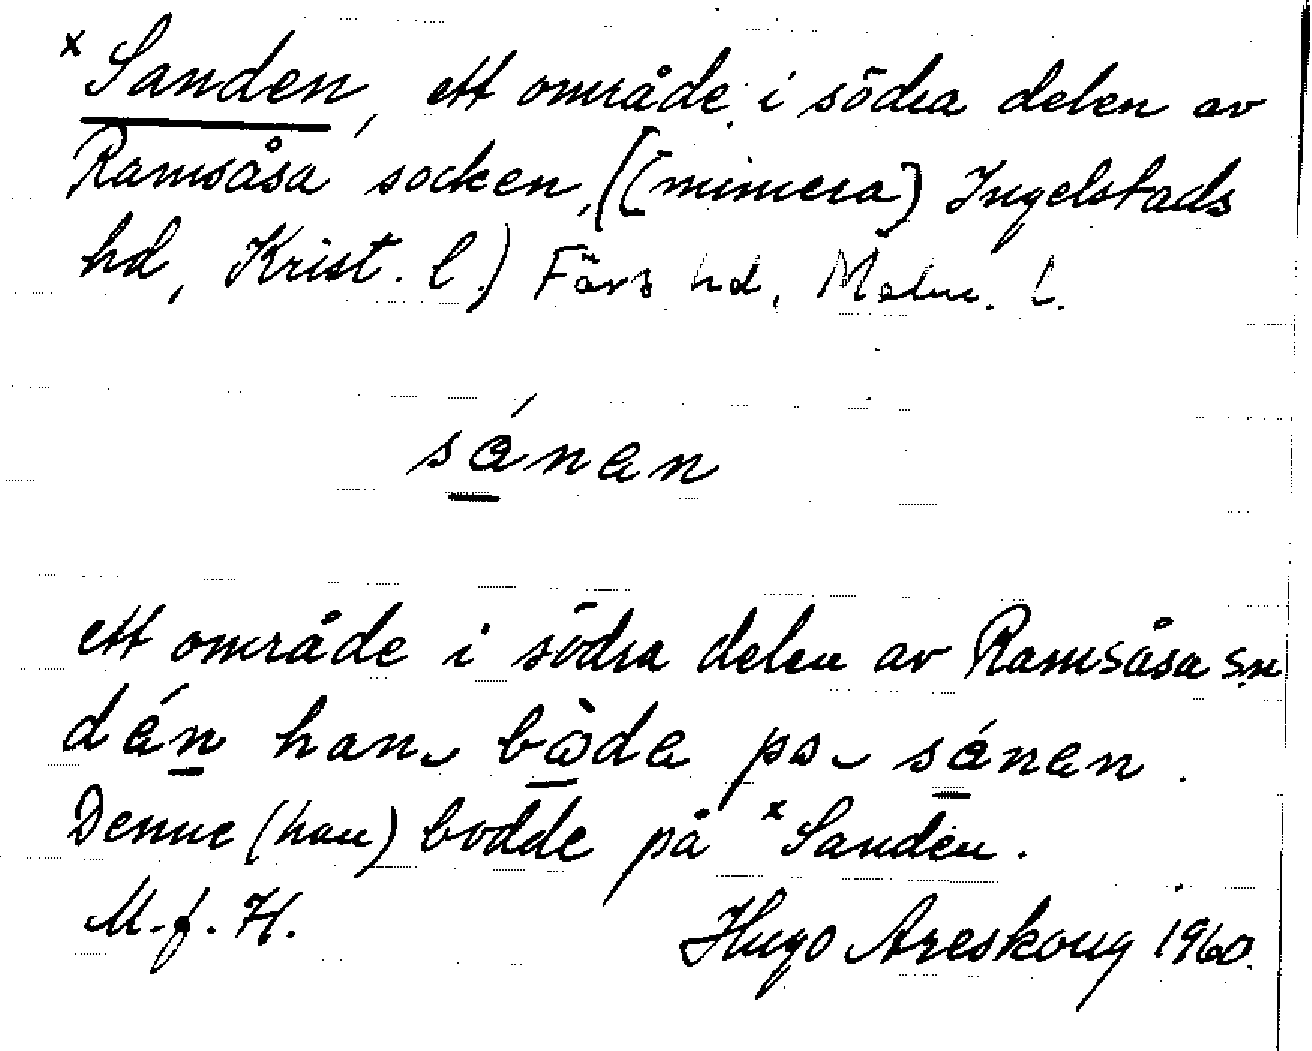 x Sanden, ett område i södra delen av
Ramsåsa socken, ([numera] Ingelstads
hd, Krist. l.) Färs hd, Malm. l.
sánan
ett område i södra delen av Ramsåsa sn
dán han bòda po sánan.
Denne (han) bodde på x Sanden.
M.f.H. Hugo Areskoug 1960.